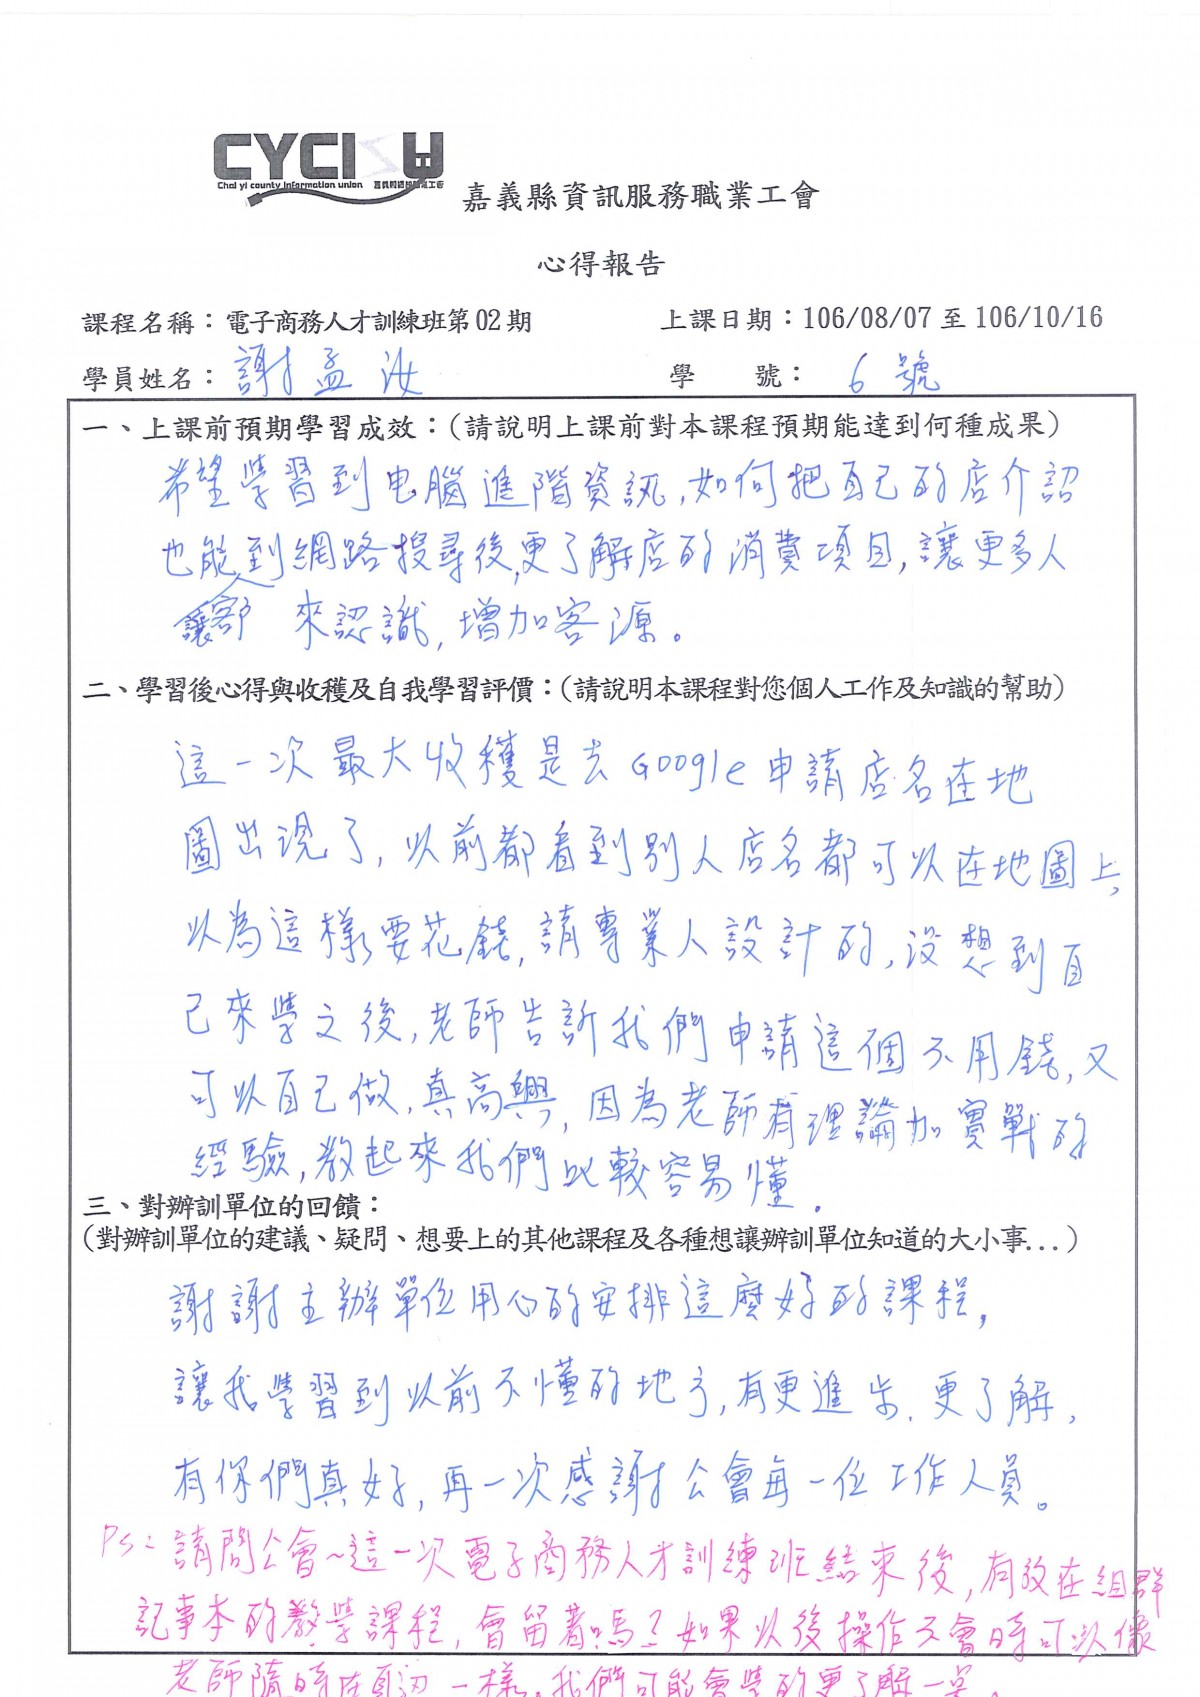 CYCISU
Chai yi county information union 嘉義縣資訊服務職業工會
嘉義縣資訊服務職業工會
心得報告
課程名稱：電子商務人才訓練班第02期 上課日期：106/08/07 至 106/10/16
學員姓名：謝孟汝 學 號：6號
一、上課前預期學習成效：(請說明上課前對本課程預期能達到何種成果)
希望學習到电腦進階資訊,如何把自己的店介認
也能到網路搜尋後,更了解店的消費項目,讓更多人
讓客戶 來認識,增加客源。
二、學習後心得與收穫及自我學習評價：(請說明本課程對您個人工作及知識的幫助)
這一次最大收穫是去Google申請店名在地
圖出現了,以前都看到別人店名都可以在地圖上,
以為這樣要花錢,請專業人設計的,沒想到自
己來學之後,老師告訴我們申請這個不用錢,又
可以自己做,真高興,因為老師有理論加實戰的
經驗,教起來我們比較容易懂.
三、對辦訓單位的回饋：
(對辦訓單位的建議、疑問、想要上的其他課程及各種想讓辦訓單位知道的大小事...)
謝謝主辦單位用心的安排這麼好的課程,
讓我學習到以前不懂的地方,有更進步.更了解,
有你們真好,再一次感謝公會每一位工作人員。
Ps:請問公會~這一次電子商務人才訓練班結束後,有放在組群
記事本的教學課程,會留著嗎?如果以後操作不會時可以像
老師隨時在身边一樣,我們可能會學的更了解一点。